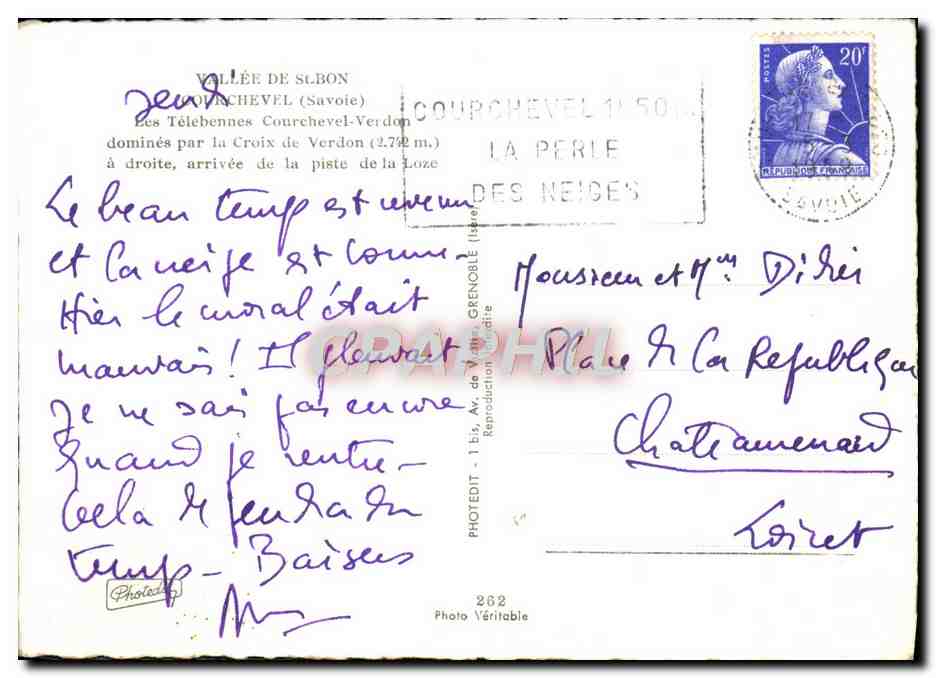 VALLÉE DE St-BON
COURCHEVEL (Savoie)
Les Télébennes Courchevel-Verdon
dominés par la Croix de Verdon (2.742 m.)
à droite, arrivée de la piste de la Loze
Jeudi
Le beau temps est revenu
et la neige est bonne -
Hier le moral était
mauvais ! Il pleuvait -
Je ne sais pas encore
quand je rentre -
Cela dépendra du
temps - Baisers
Photedit
COURCHEVEL 1850 m.
LA PERLE
DES NEIGES
POSTES
20F
REPUBLIQUE FRANÇAISE
SAVOIE
Monsieur et Mme Didier
Place de la République
Chateaurenard
Loiret
PHOTEDIT - 1 bis, Av. de Vizille, GRENOBLE (Isère)
Reproduction interdite
262
Photo Véritable
CPAPHIL